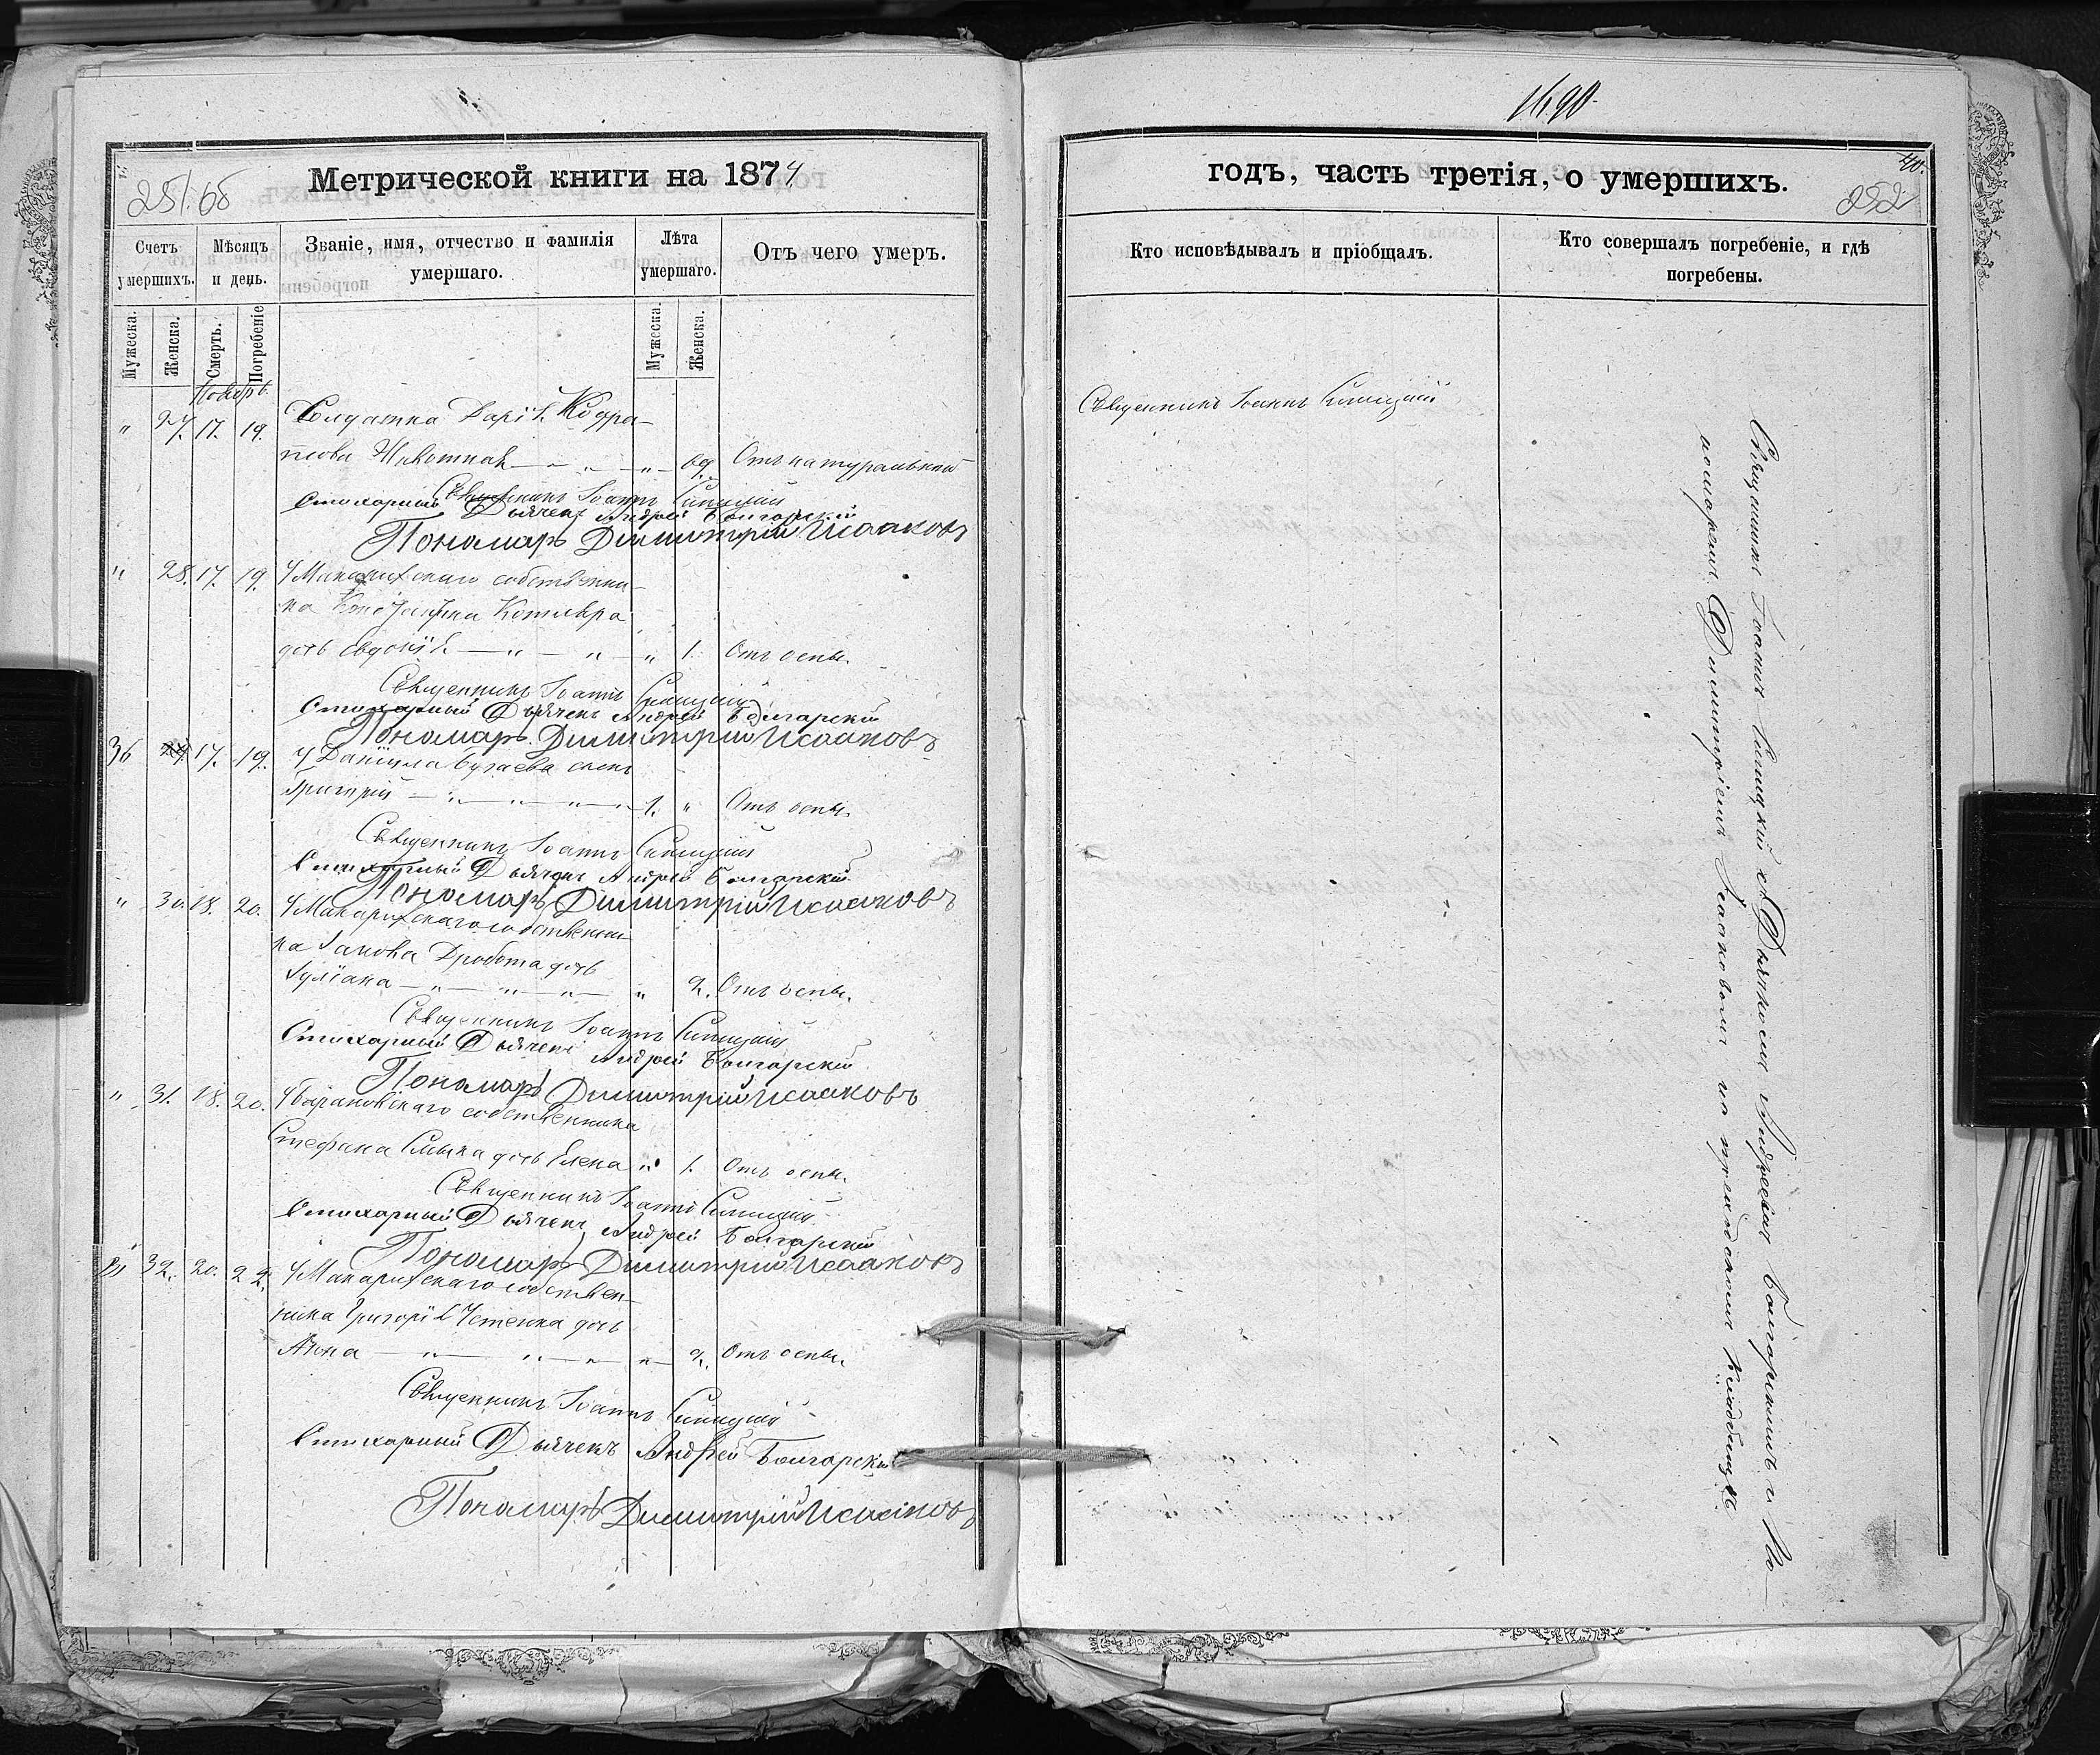 251 об
Метрической книги на 1874
Счетъ умершихъ.
Мѣсяцъ и день.
Званіе, имя, отчество и фамилія умершаго.
Лѣта умершаго.
Отъ чего умеръ.
Мужеска.
Женска.
Смерть.
Погребеніе
Мужеска.
Женска.
Ноябрь.
" 27. 17. 19. Солдатка Дарія Кодра-
това Животная — " — " — 69. Отъ натуральной
Священникъ Іоаннъ
Стихарный Дьячекъ Андрей Болгарскій
Пономарь Димитрій Исааковъ
" 28. 17. 19. У собственни-
ка Константина Котляра
дочь Евдокія — " — " — " 1. Отъ оспы.
Священникъ Іоаннъ
Стихарный Дьячекъ Андрей Болгарскій
Пономарь Димитрій Исааковъ
36 17. 19. У Даніила Бугаева сынъ
Григорій — " — " — " — 1. " Отъ оспы.
Священникъ Іоаннъ
Стихарный Дьячекъ Андрей Болгарскій
Пономарь Димитрій Исааковъ
" 30. 18. 20. У собственни-
ка Іакова Дробота дочь
Іуліана — " — " — " — " 2. Отъ оспы.
Священникъ Іоаннъ
Стихарный Дьячекъ Андрей Болгарскій
Пономарь Димитрій Исааковъ
" 31. 18. 20. У собственника
Стефана Смыка дочь Елена " 1. Отъ оспы.
Священникъ Іоаннъ
Стихарный Дьячекъ Андрей Болгарскій
Пономарь Димитрій Исааковъ
" 32. 20. 22. У собствен-
ника Григорія Устенка дочь
Анна — " — " — " — " — 2. Отъ оспы.
Священникъ Іоаннъ
Стихарный Дьячекъ Андрей Болгарскій
Пономарь Димитрій Исааковъ
1690.
40.
252
годъ, часть третія, о умершихъ.
Кто исповѣдывалъ и пріобщалъ.
Кто совершалъ погребеніе, и гдѣ погребены.
Священникъ Іоаннъ
Священникъ Іоаннъ съ Дьячкомъ Андреемъ Болгарскимъ и По-
номаремъ Димитріемъ Исааковомъ на приходскомъ кладбищѣ